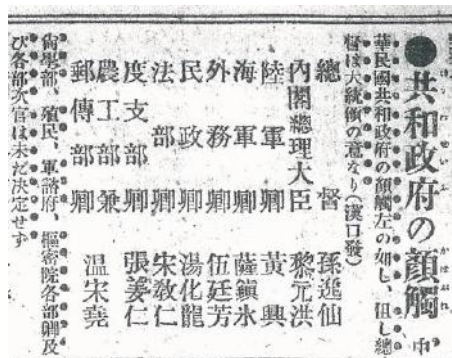 ●共和政府の顔觸
中華民國共和政府の顔觸左の如し、但し總
督は大統領の意なり(漢口發)
總督 孫逸仙
內閣總理大臣 黎元洪
陸軍卿 黃興
海軍卿 薩鎭氷
外務卿 伍廷芳
民政卿 湯化龍
法部卿 宋敎仁
度支部卿 張謇仁
農工部兼
郵傳部卿 溫宋堯
尙學部、殖民、軍諮府、樞密院各部卿及
び各部次官は未だ決定せず